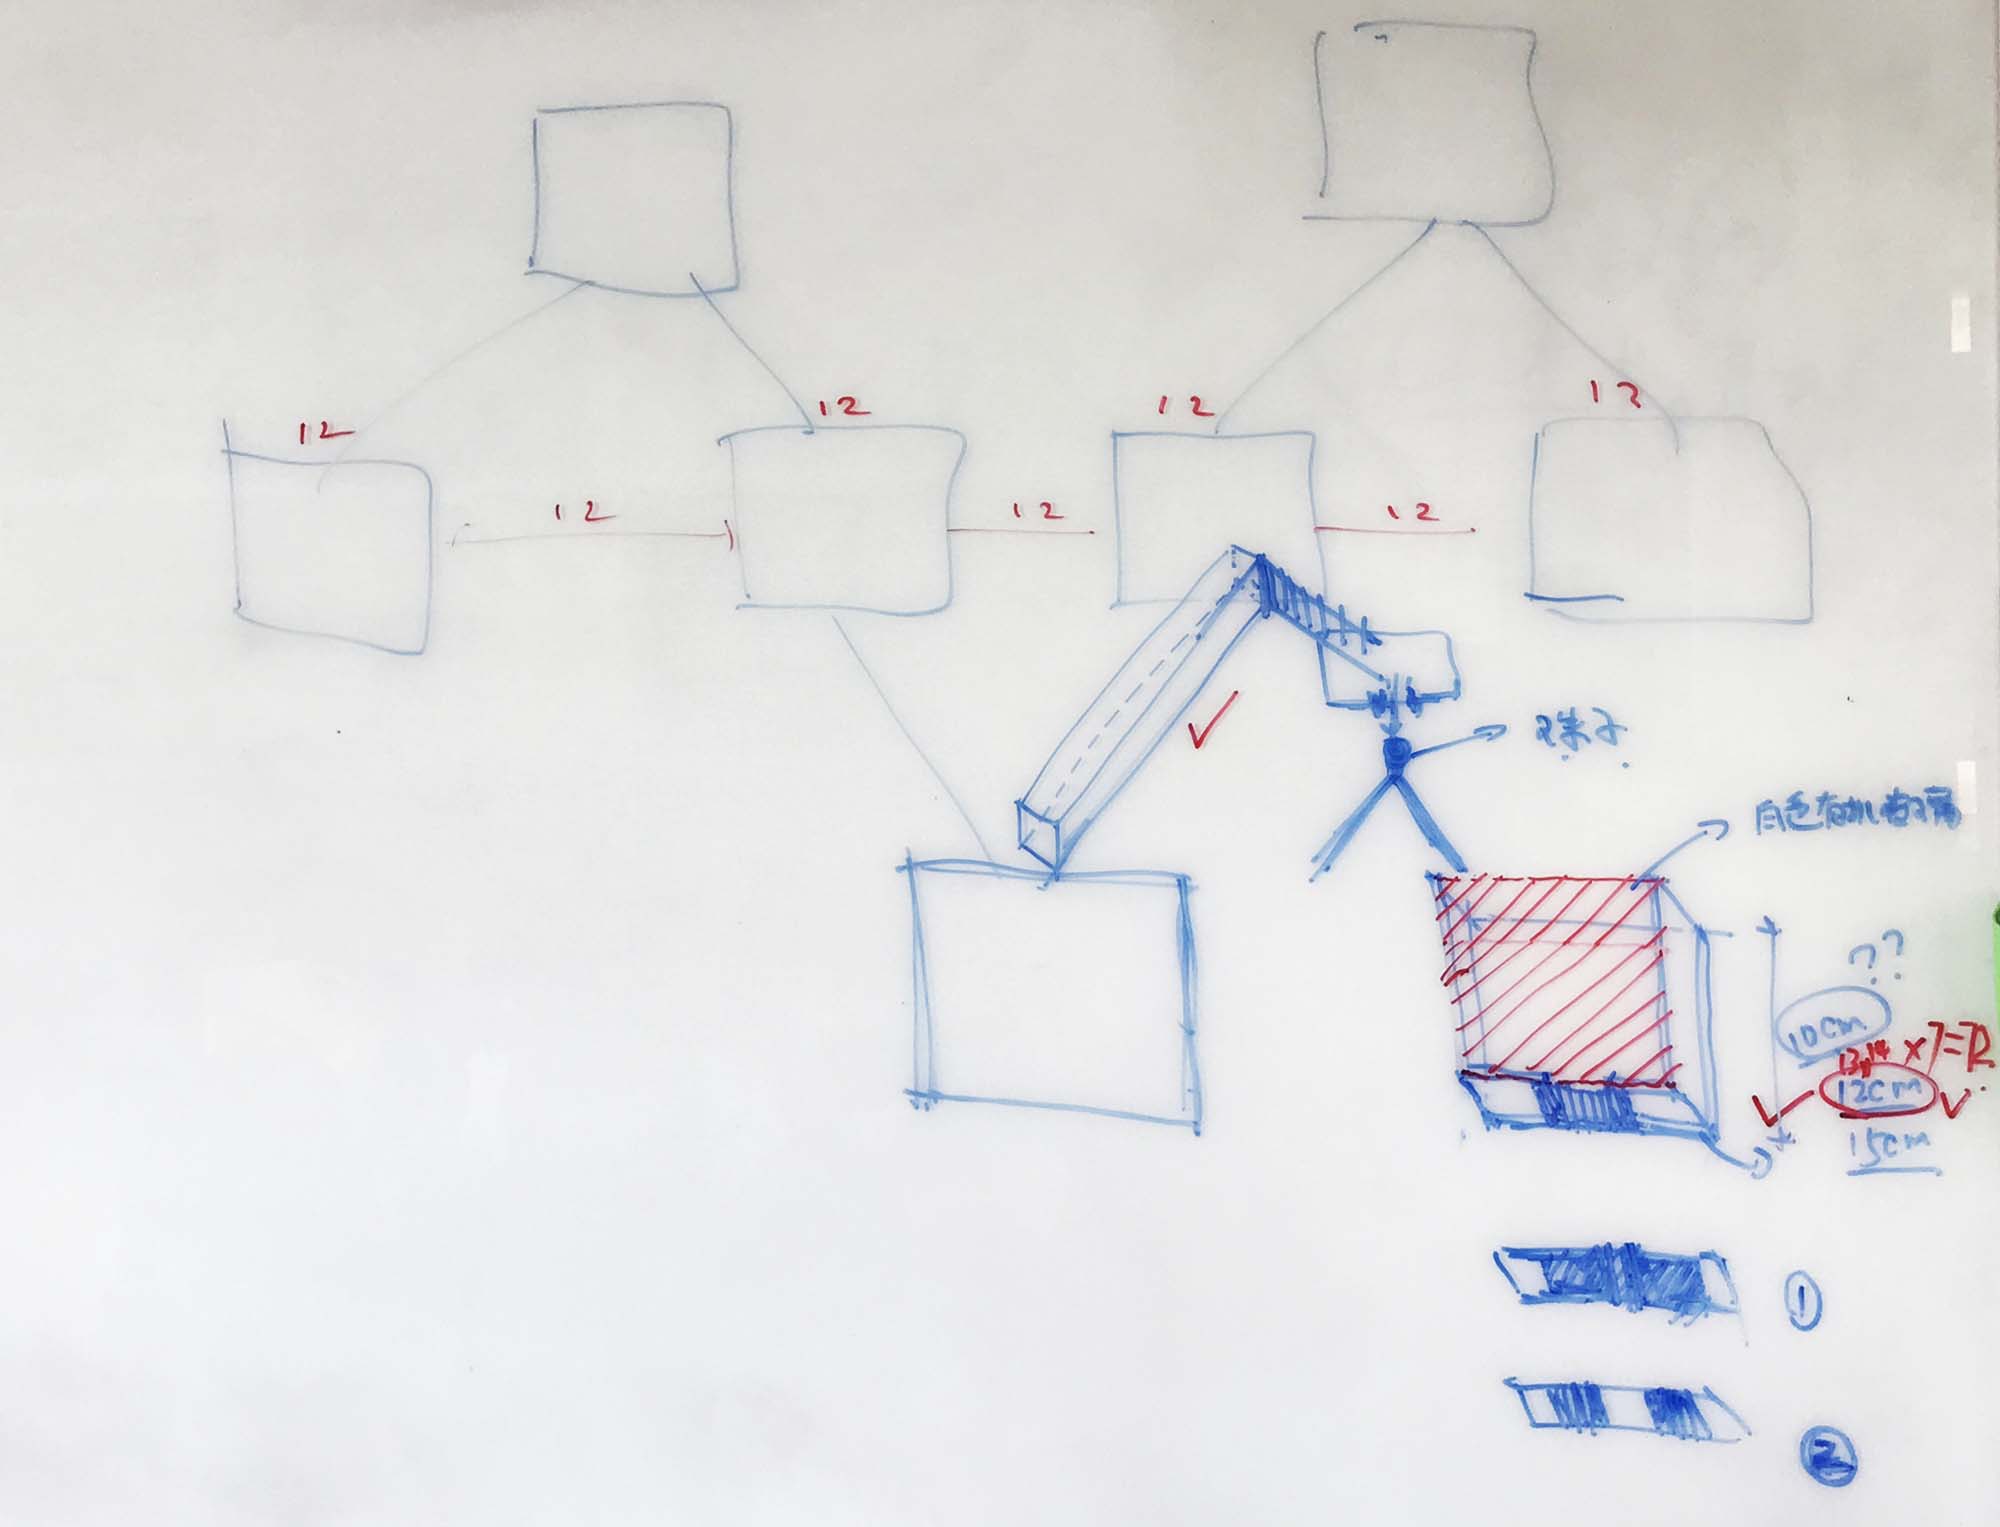 12
12
12
12
12
12
12
珠子
白色有机玻璃
??
10cm
13,14 × 7 = 72
12cm
15cm
①
②